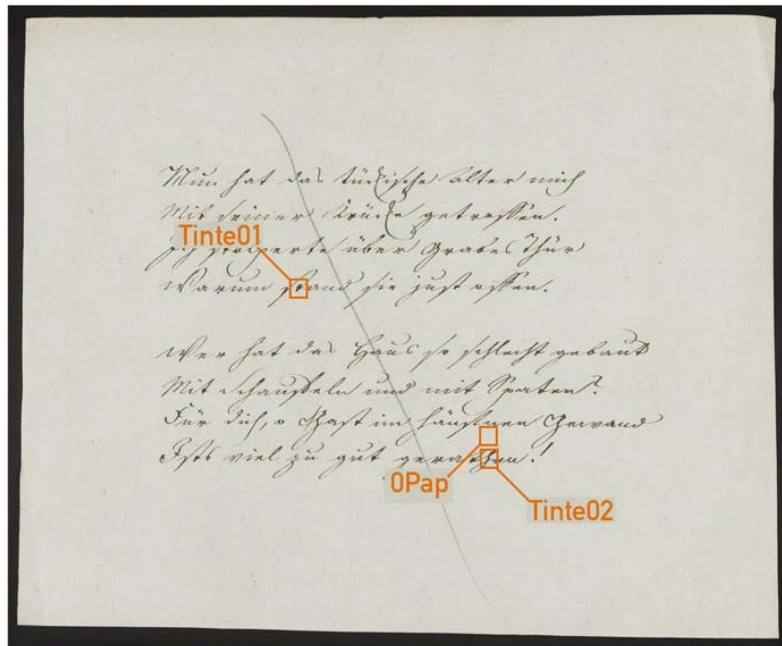 Nun hat das tückische Alter mich
Mit seiner Krücke getroffen.
Tinte01
Ich stolperte über Grabes Thür
Warum stand sie just offen.
Wer hat das Haus so schlecht gebaut
Mit Schaufeln und mit Spaten?
Für dich, o Gast im hänfnen Gewand
Ists viel zu gut gerathen!
0Pap
Tinte02